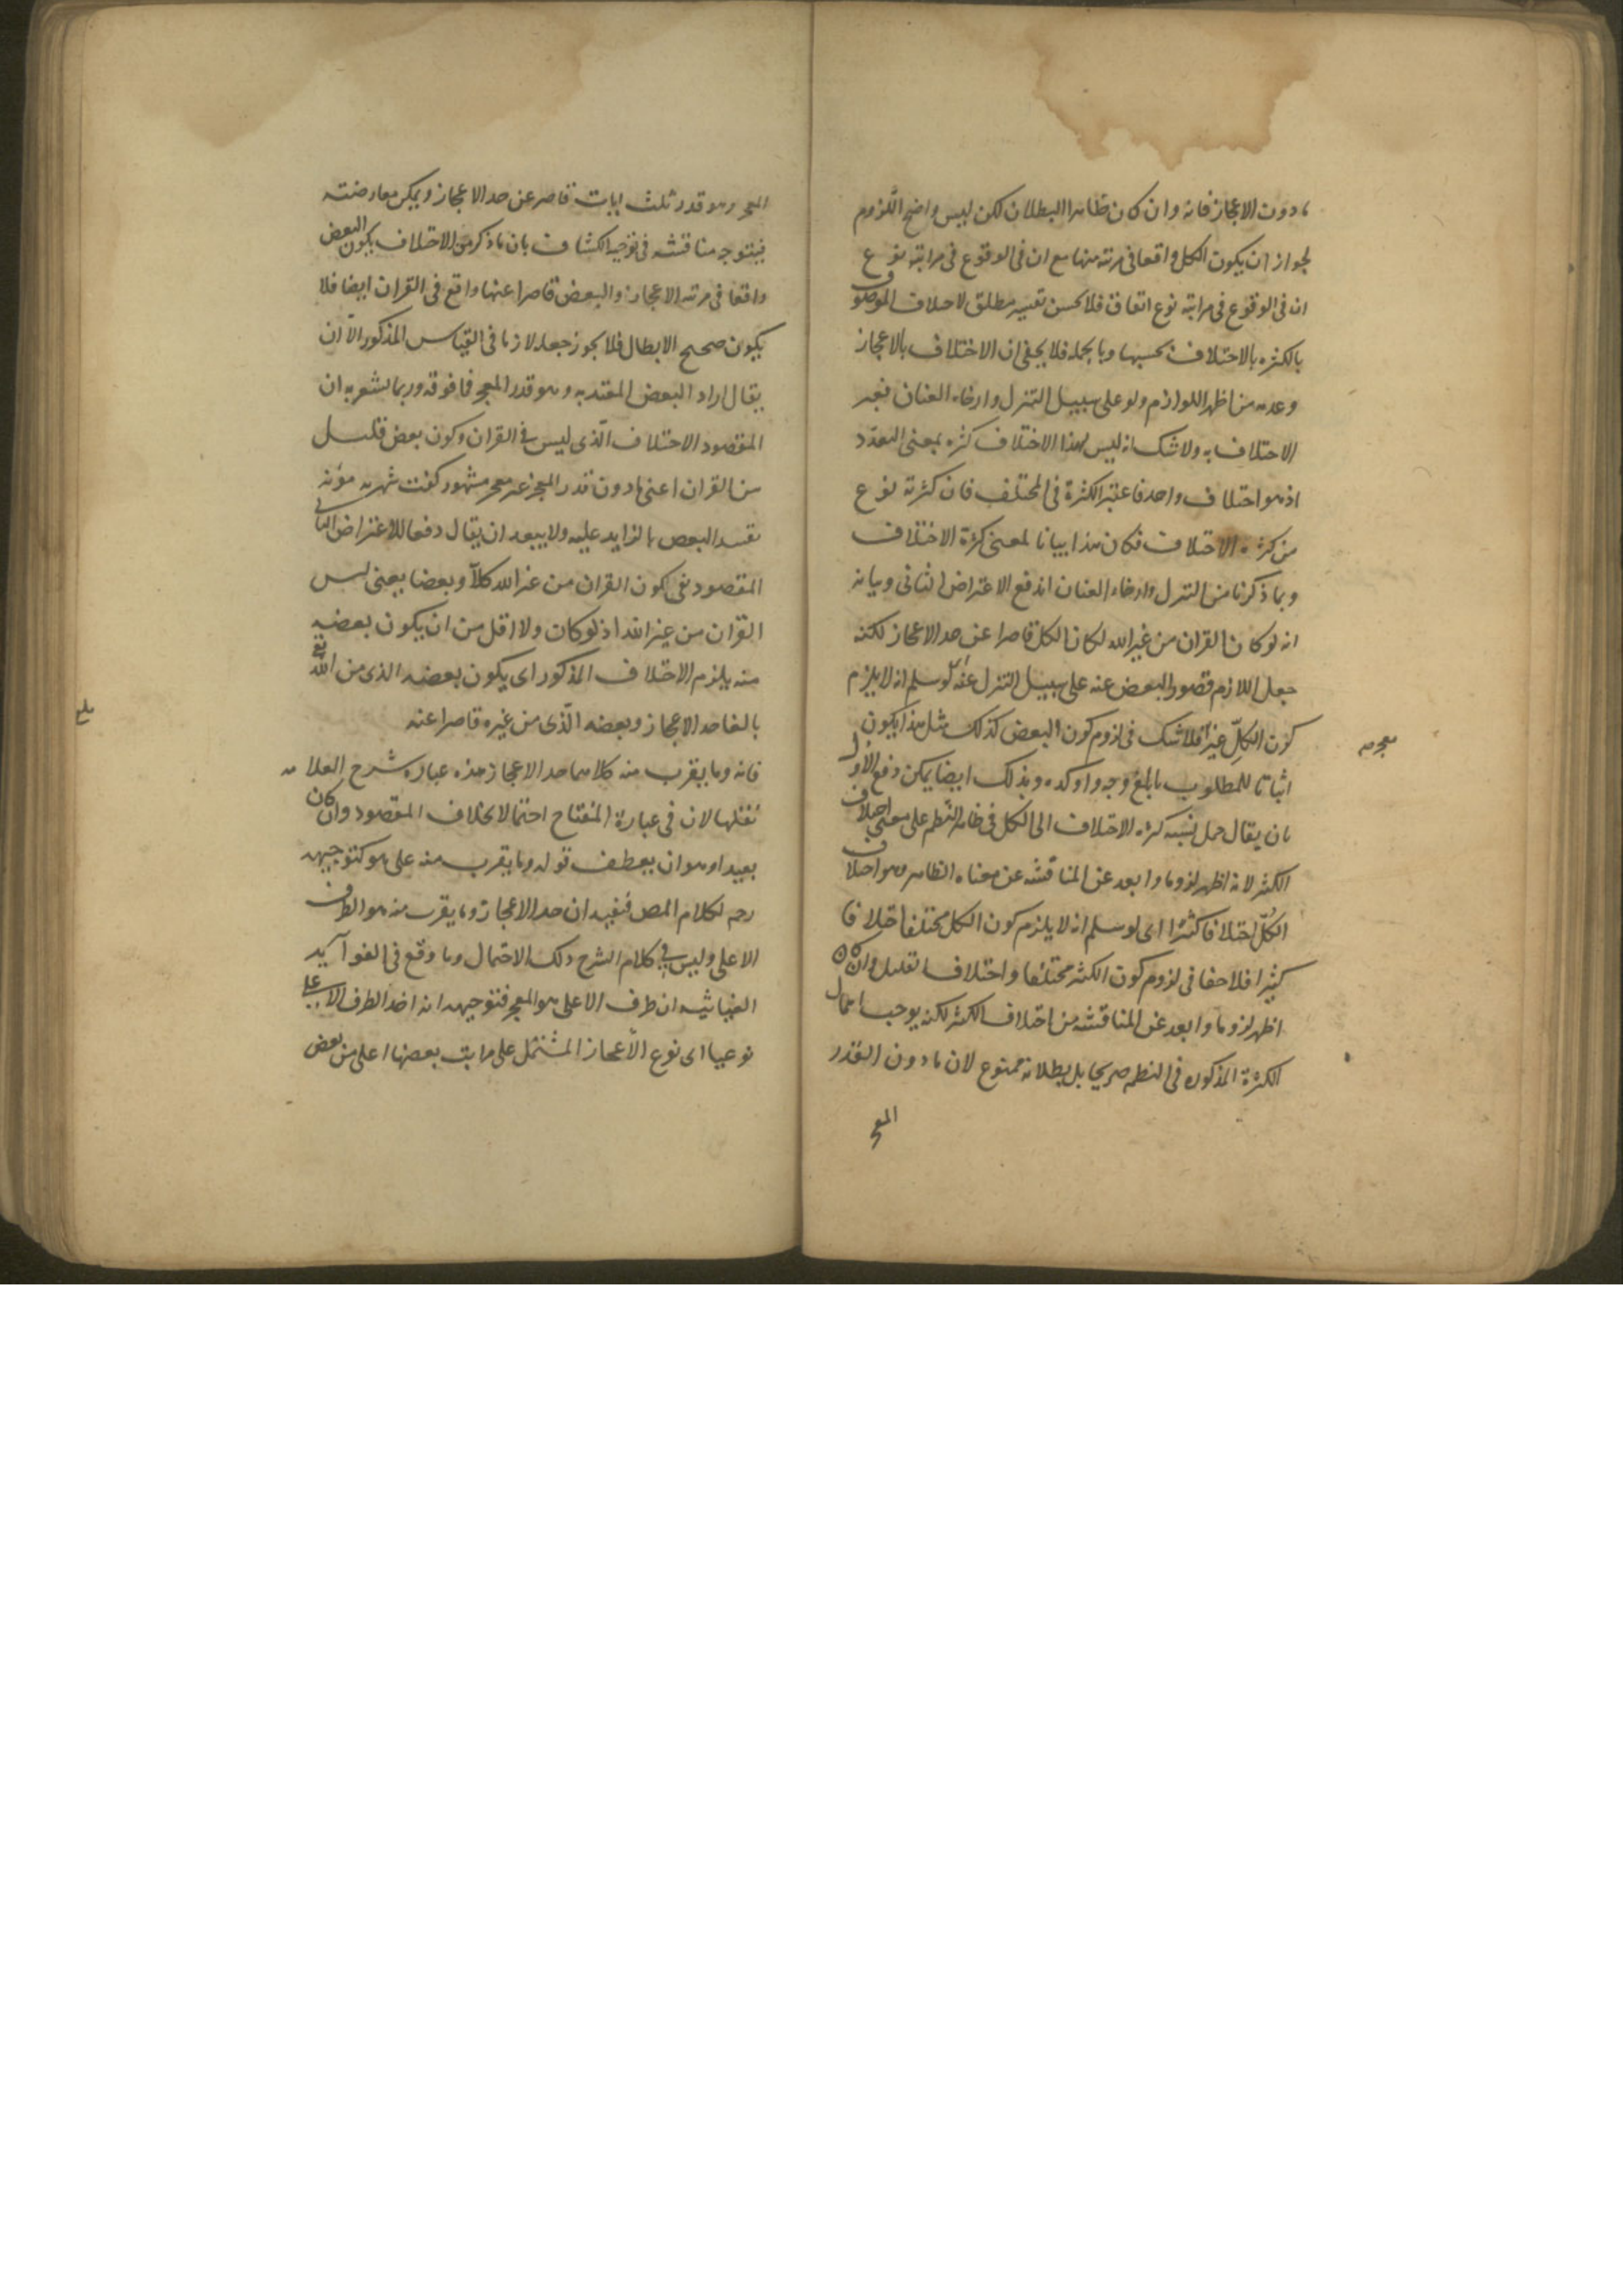 ما دون الاعجاز فانه وان كان ظاهر البطلان لكن ليس واضح اللزوم
لجواز ان يكون الكل واقعا فى مرتبة منها مع ان فى الوقوع فى مراتبه نوع
ان فى الوقوع فى مراتبه نوع اتفاق فلا يحسن تفسير مطلق الاختلاف الموصوف
بالكثرة بالاختلاف بحسبها وبالجملة فلا يخفى ان الاختلاف بالاعجاز
وعدمه من اظهر اللوازم ولو على سبيل التنزل وارخاء العنان فعبر
الاختلاف به ولا شك انه ليس لهذا الاختلاف كثرة بمعنى التعدد
اذ هو اختلاف واحد فاعتبر الكثرة فى المختلف فان كثرته نوع
من كثرة الاختلاف فكان هذا بيانا لمعنى كثرة الاختلاف
وبما ذكرنا من التنزل وارخاء العنان اندفع الاعتراض الثانى وبيانه
انه لو كان القران من غير الله لكان الكل قاصرا عن حد الاعجاز لكنه
جعل اللازم قصور البعض عنه على سبيل التنزل عنه لو سلم انه لا يلزم
كون الكلّ غير فلا شك فى لزوم كون البعض كذلك مثل هذا يكون
معجز صح
اثباتا للمطلوب بابلغ وجه واوكده وبذلك ايضا يمكن دفع الاول
بان يقال حمل نسبة كثرة الاختلاف الى الكل فى ظاهر النظم على معنى اختلاف
الكثير لانه اظهر لزوما وابعد عن المناقشة عن معناه الظاهر وهو اختلاف
الكلّ اختلافا كثيرا اى لو سلم انه لا يلزم كون الكل مختلفا اختلافا
كثيرا فلا خفا فى لزوم كون الكثير مختلفا واختلاف القليل وان كان
اظهر لزوما وابعد عن المناقشة من اختلاف الكثير لكنه يوجب اهمال
الكثرة المذكورة فى النظم صريحا بل بطلانه ممنوع لان ما دون القدر
المعجز
المعجز وهو قدر ثلث ايات قاصر عن حد الاعجاز ويمكن معارضته
فيتوجه مناقشة فى توجيه الكشاف بان ما ذكر من الاختلاف بكون البعض
واقعا فى مرتبة الاعجاز والبعض قاصرا عنها واقع فى القران ايضا فلا
يكون صحيح الابطال فلا يجوز جعله لازما فى القياس المذكور الّا ان
يقال اراد البعض المعتد به وهو قدر المعجز فما فوقه وربما يشعر به ان
المقصود الاختلاف الّذى ليس فى القران وكون بعض قليل
من القران اعنى ما دون قدر المعجز غير معجز مشهور كفت شهرته مؤنة
تقييد البعض بالزايد عليه ولا يبعد ان يقال دفعا للاعتراض الثانى
المقصود نفى كون القران من غير الله كلّا وبعضا يعنى ليس
القران من غير الله اذ لو كان ولا اقل من ان يكون بعضه
منه يلزم الاختلاف المذكور اى يكون بعضه الذى من الله تع
بالغا حد الاعجاز وبعضه الّذى من غيره قاصرا عنه
فانه وما يقرب منه كلاهما حد الاعجاز هذه عبارة شرح العلامه
نقلها لان فى عبارة المفتاح احتمالا بخلاف المقصود وان كان
بعيدا وهو ان يعطف قوله وما يقرب منه على هو كتوجيهه
رحمه لكلام المص فيفيد ان حد الاعجاز وما يقرب منه هو الطرف
الاعلى وليس فى كلام الشرح ذلك الاحتمال وما وقع فى الفوائد
الغياثيه ان طرف الاعلى هو المعجز فتوجيهه انه اخذ الطرف الاعلى
نوعيا اى نوع الاعجاز المشتمل على مراتب بعضها اعلى من بعض
بلغ